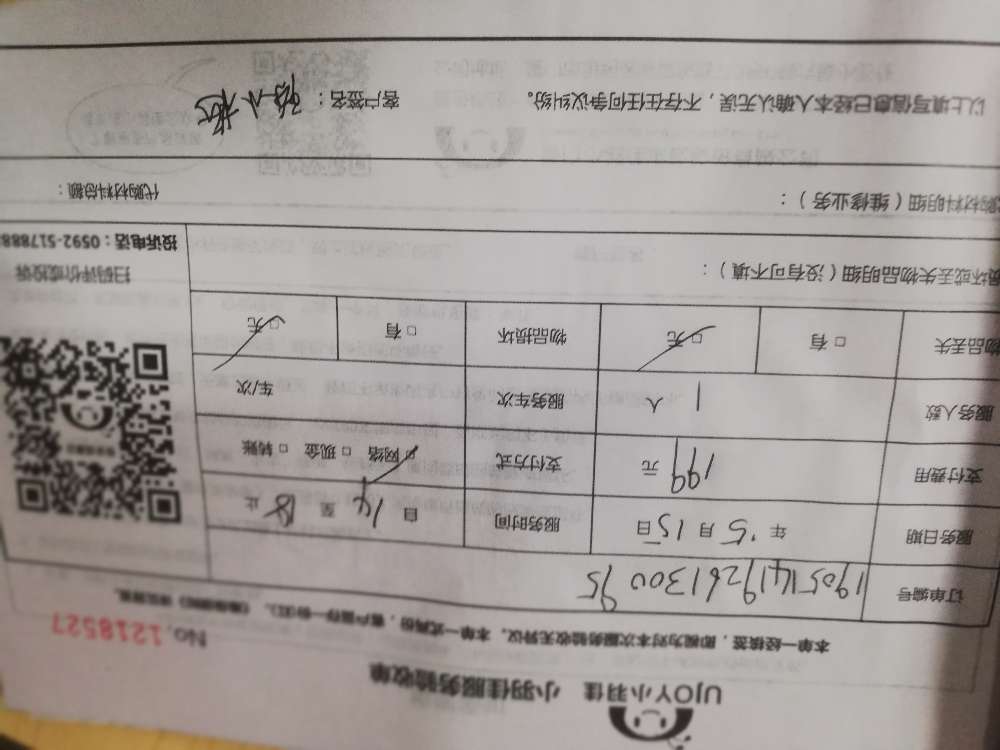 UJOY小羽佳 小羽佳服务验收单
No.1218527
本单一经接签，即视为对本次服务验收无异议。本单一式两份，客户留存一份(页)，
订单编号 19051419261300 95
服务日期 年 5 月 15 日 服务时间 自 14 至 18 止
支付费用 199 元 支付方式 ☑网络 □现金 □转账
服务人数 1 人 服务车次 车/次
物品丢失 □有 ☑无 物品损坏 □有 ☑无
扫码评价或投诉
投诉电话：0592-517888
损坏或丢失物品明细（没有可不填）：
代购材料明细（维修业务）： 代购材料总额：
以上填写信息已经本人确认无误，不存在任何争议纠纷。 客户签名：